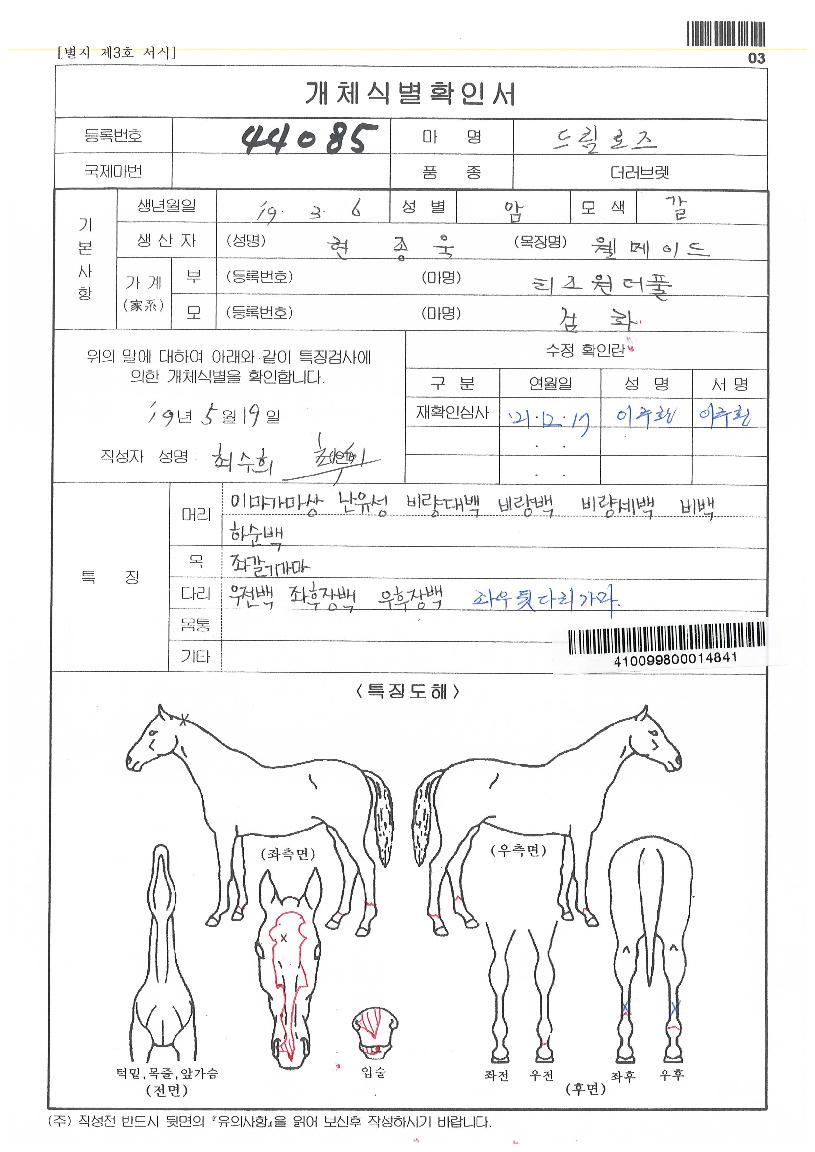 [별지 제3호 서식]
03
개체식별확인서
등록번호 44085 마 명 드림로즈
국제마번 품 종 더러브렛
기본사항
생년월일 '19. 3. 6 성 별 암 모 색 갈
생 산 자 (성명) 현 종 욱 (목장명) 웰메이드
가 계 (家系) 부 (등록번호) (마명) 티즈원더풀
모 (등록번호) (마명) 검 화
위의 말에 대하여 아래와 같이 특징검사에
의한 개체식별을 확인합니다.
'19년 5월 19일
작성자 성명 최수희
수정 확인란
구 분 연월일 성 명 서 명
재확인심사 '21.12.17 이주환 이주환
. .
. .
특 징
머리 이마가마상 난유성 비량대백 비량백 비량세백 비백
하순백
목 좌갈기가마
다리 우전백 좌후장백 우후장백 좌우뒷다리가마.
몸통
기타
410099800014841
<특징도해>
(좌측면)
(우측면)
턱밑,목줄,앞가슴
(전면)
입술
좌전 우전 좌후 우후
(후면)
(주) 작성전 반드시 뒷면의 『유의사항』을 읽어 보신후 작성하시기 바랍니다.